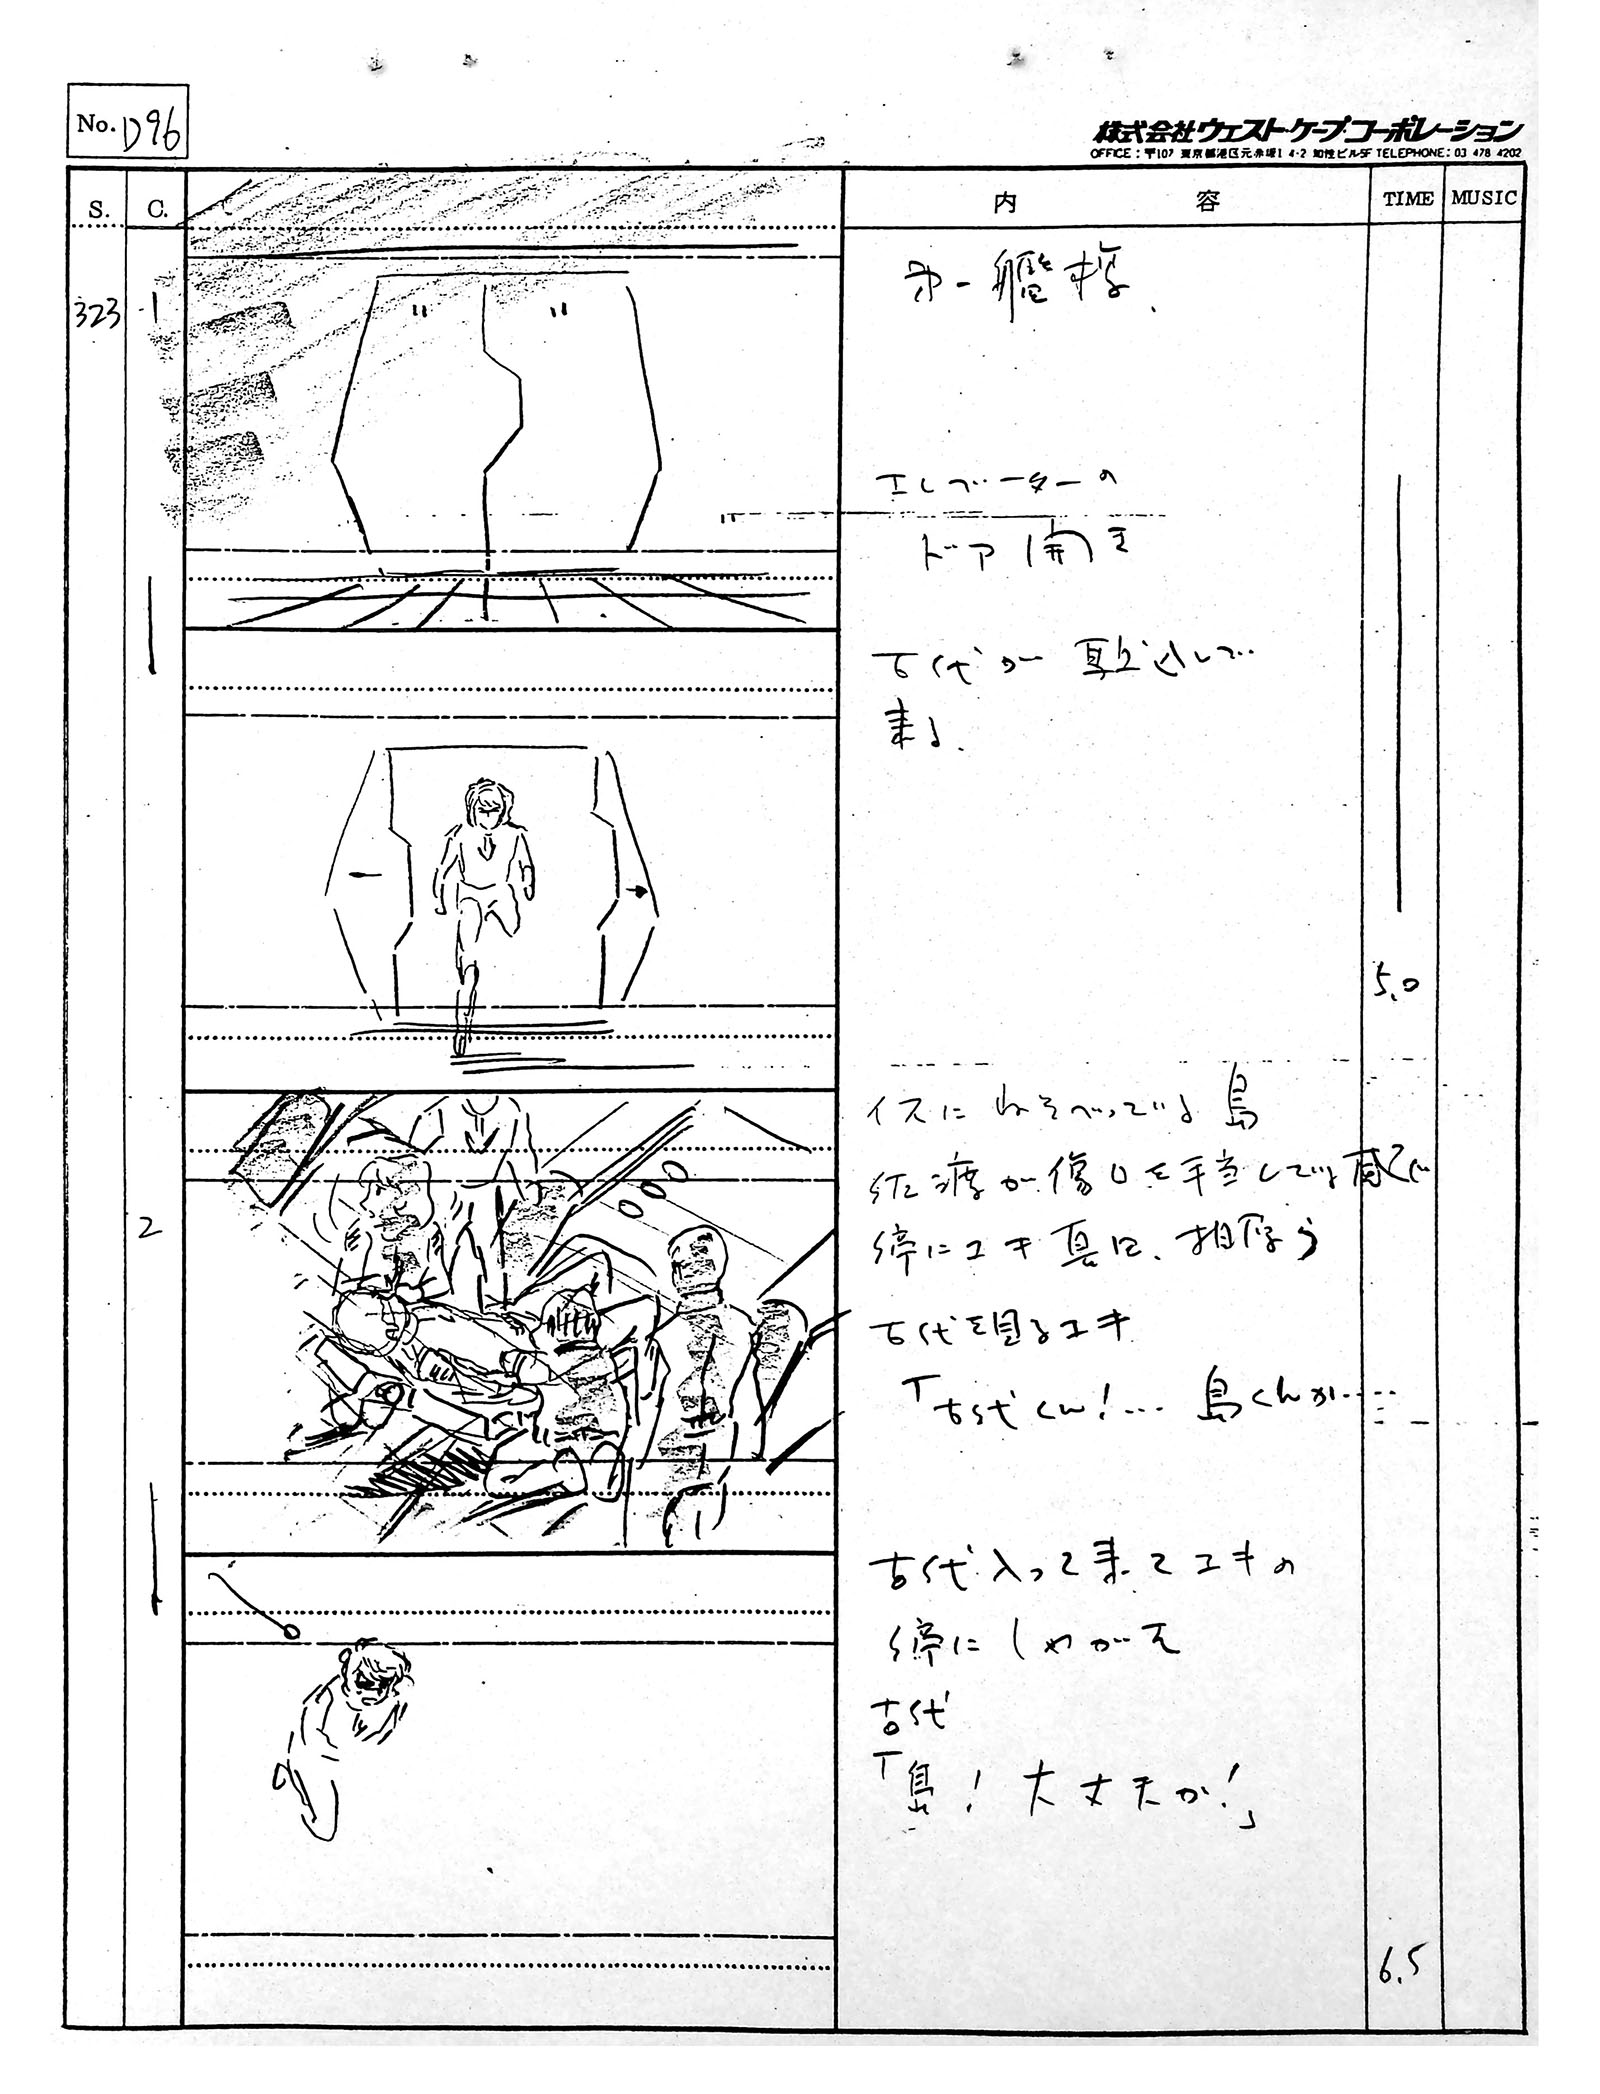 No. D96
株式会社ウエスト・ケープ・コーポレーション
OFFICE：〒107 東京都港区元赤坂1 4-2 知性ビル5F TELEPHONE：03 478 4202
S. C. 内容 TIME MUSIC
323 1
オ一艦橋.
エレベーターの
ドア開き
古代が駆込して
来る.
5.0
2
イスにねそべっている島
佐渡が傷口を手当している感じ
傍にユキ 真田、相原ら
古代を見るユキ
「古代くん!… 島くんが……
古代入って来てユキの
傍にしゃがむ
古代
「島! 大丈夫か!」
6.5